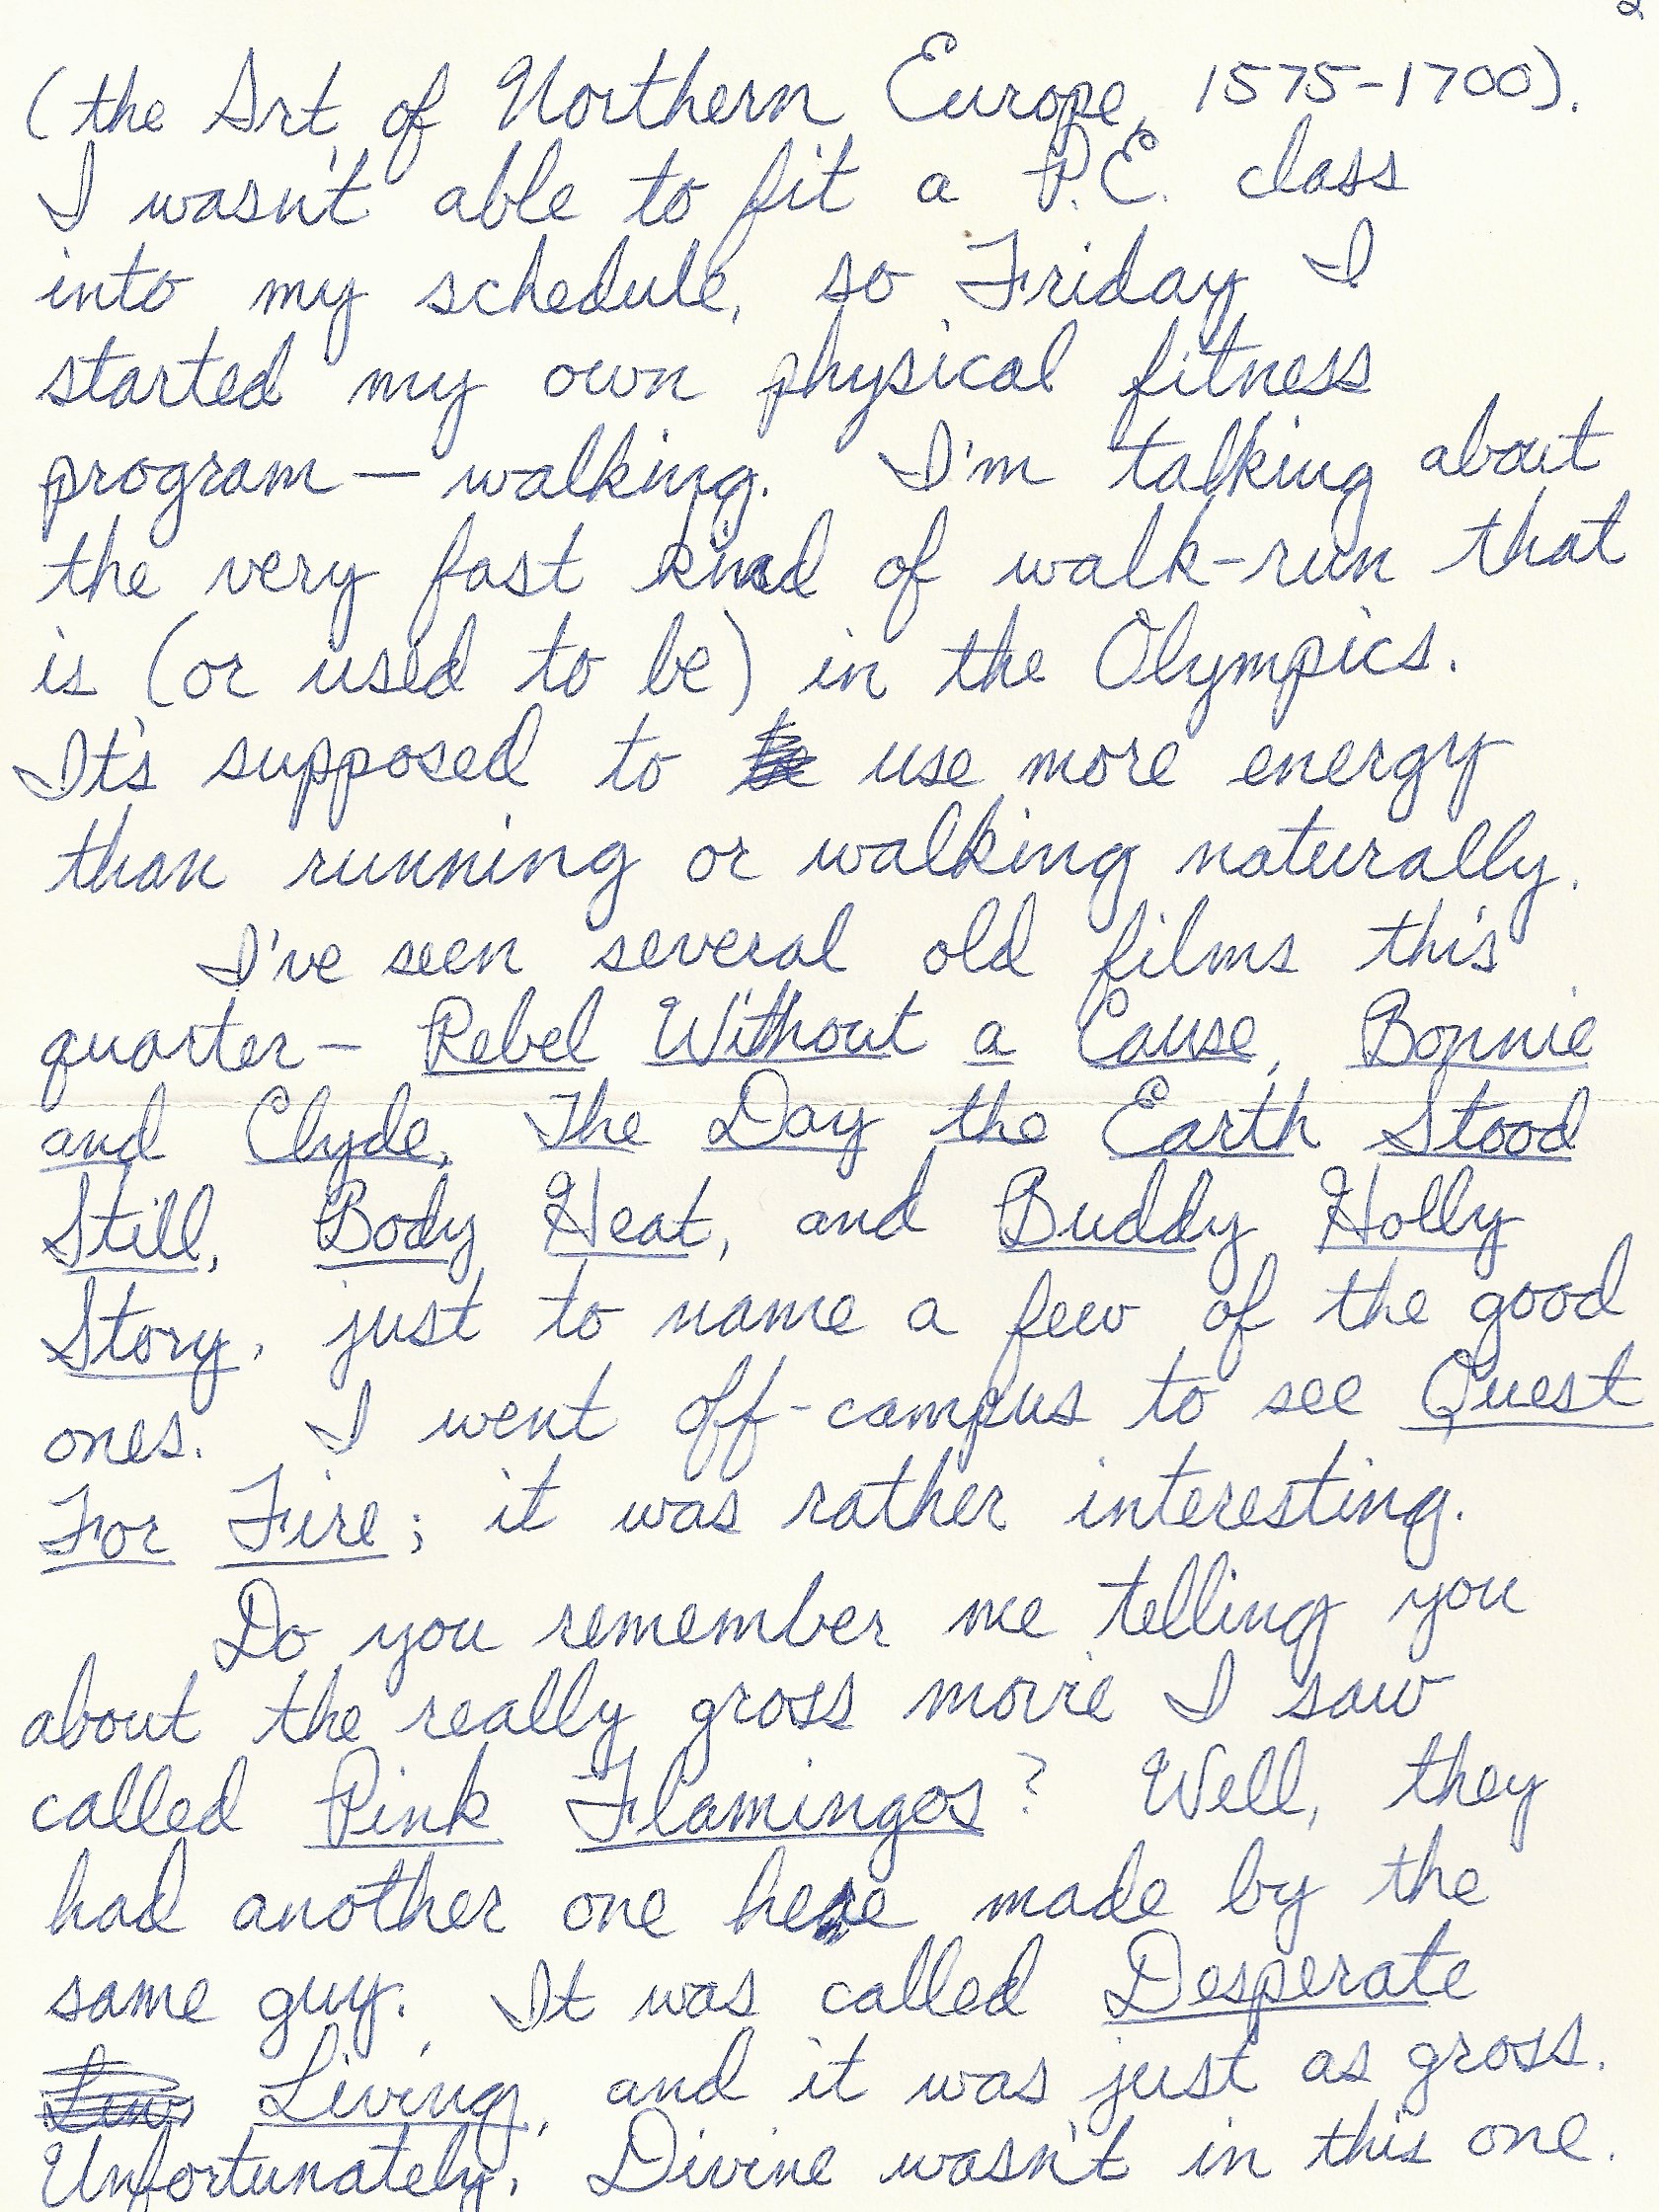 2
(the Art of Northern Europe, 1575-1700).
I wasn't able to fit a P.E. class
into my schedule, so Friday I
started my own physical fitness
program — walking. I'm talking about
the very fast kind of walk-run that
is (or used to be) in the Olympics.
It's supposed to use more energy
than running or walking naturally.
I've seen several old films this
quarter - Rebel Without a Cause, Bonnie
and Clyde, The Day the Earth Stood
Still, Body Heat, and Buddy Holly
Story, just to name a few of the good
ones. I went off-campus to see Quest
For Fire; it was rather interesting.
Do you remember me telling you
about the really gross movie I saw
called Pink Flamingos? Well, they
had another one here made by the
same guy. It was called Desperate
Living, and it was just as gross.
Unfortunately, Divine wasn't in this one.